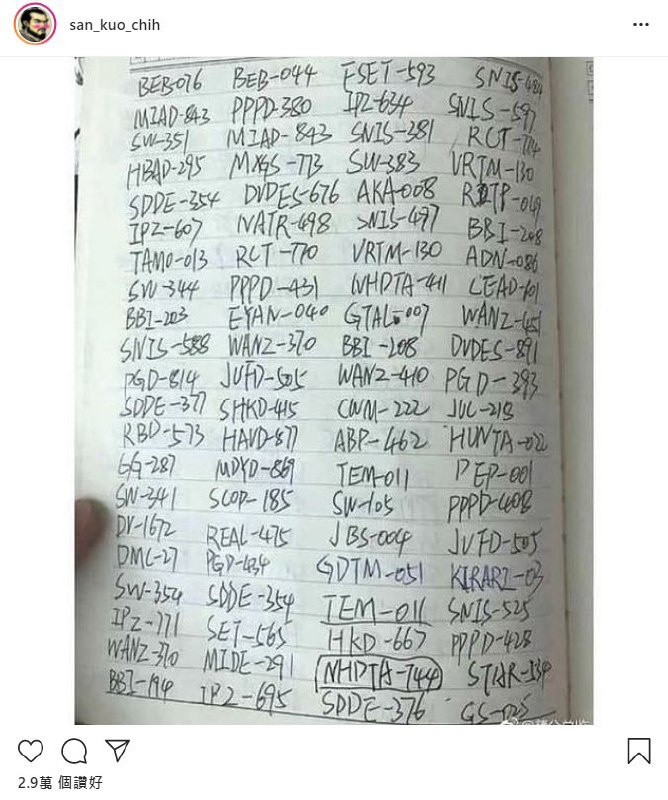 san_kuo_chih
BEB-076 BEB-044 FSET-593 SNIS-484
MIAD-843 PPPD-380 IPZ-634 SNIS-597
SW-351 MIAD-843 SNIS-381 RCT-774
HBAD-295 MXGS-773 SW-383 VRTM-130
SDDE-354 DVDES-676 AKA-008 -049
IPZ-607 NATR-498 SNIS-497 BBI-208
TAMO-013 RCT-770 VRTM-130 ADN-086
SW-344 PPPD-431 NHDTA-411 CEAD-101
BBI-203 EYAN-040 GTAL-007 WANZ-451
SNIS-588 WANZ-370 BBI-208 DVDES-891
PGD-814 JUFD-505 WANZ-410 PGD-393
SDDE-377 SHKD-415 CWM-222 JUC-218
RBD-573 HAVD-877 ABP-462 HUNTA-022
GG-287 MDYD-869 TEM-011 PEP-001
SW-341 SCOP-185 SW-105 PPPD-408
DV-1672 REAL-475 JBS-004 JUFD-505
DMC-27 PGD-434 GDTM-051 KIRARI-03
SW-354 SDDE-354 TEM-011 SNIS-525
IPZ-771 SET-565 HKD-667 PPPD-428
WANZ-370 MIDE-291 NHDTA-744 STAR-134
BBI-194 IPZ-695 SDDE-376 GS-025
2.9萬 個讚好